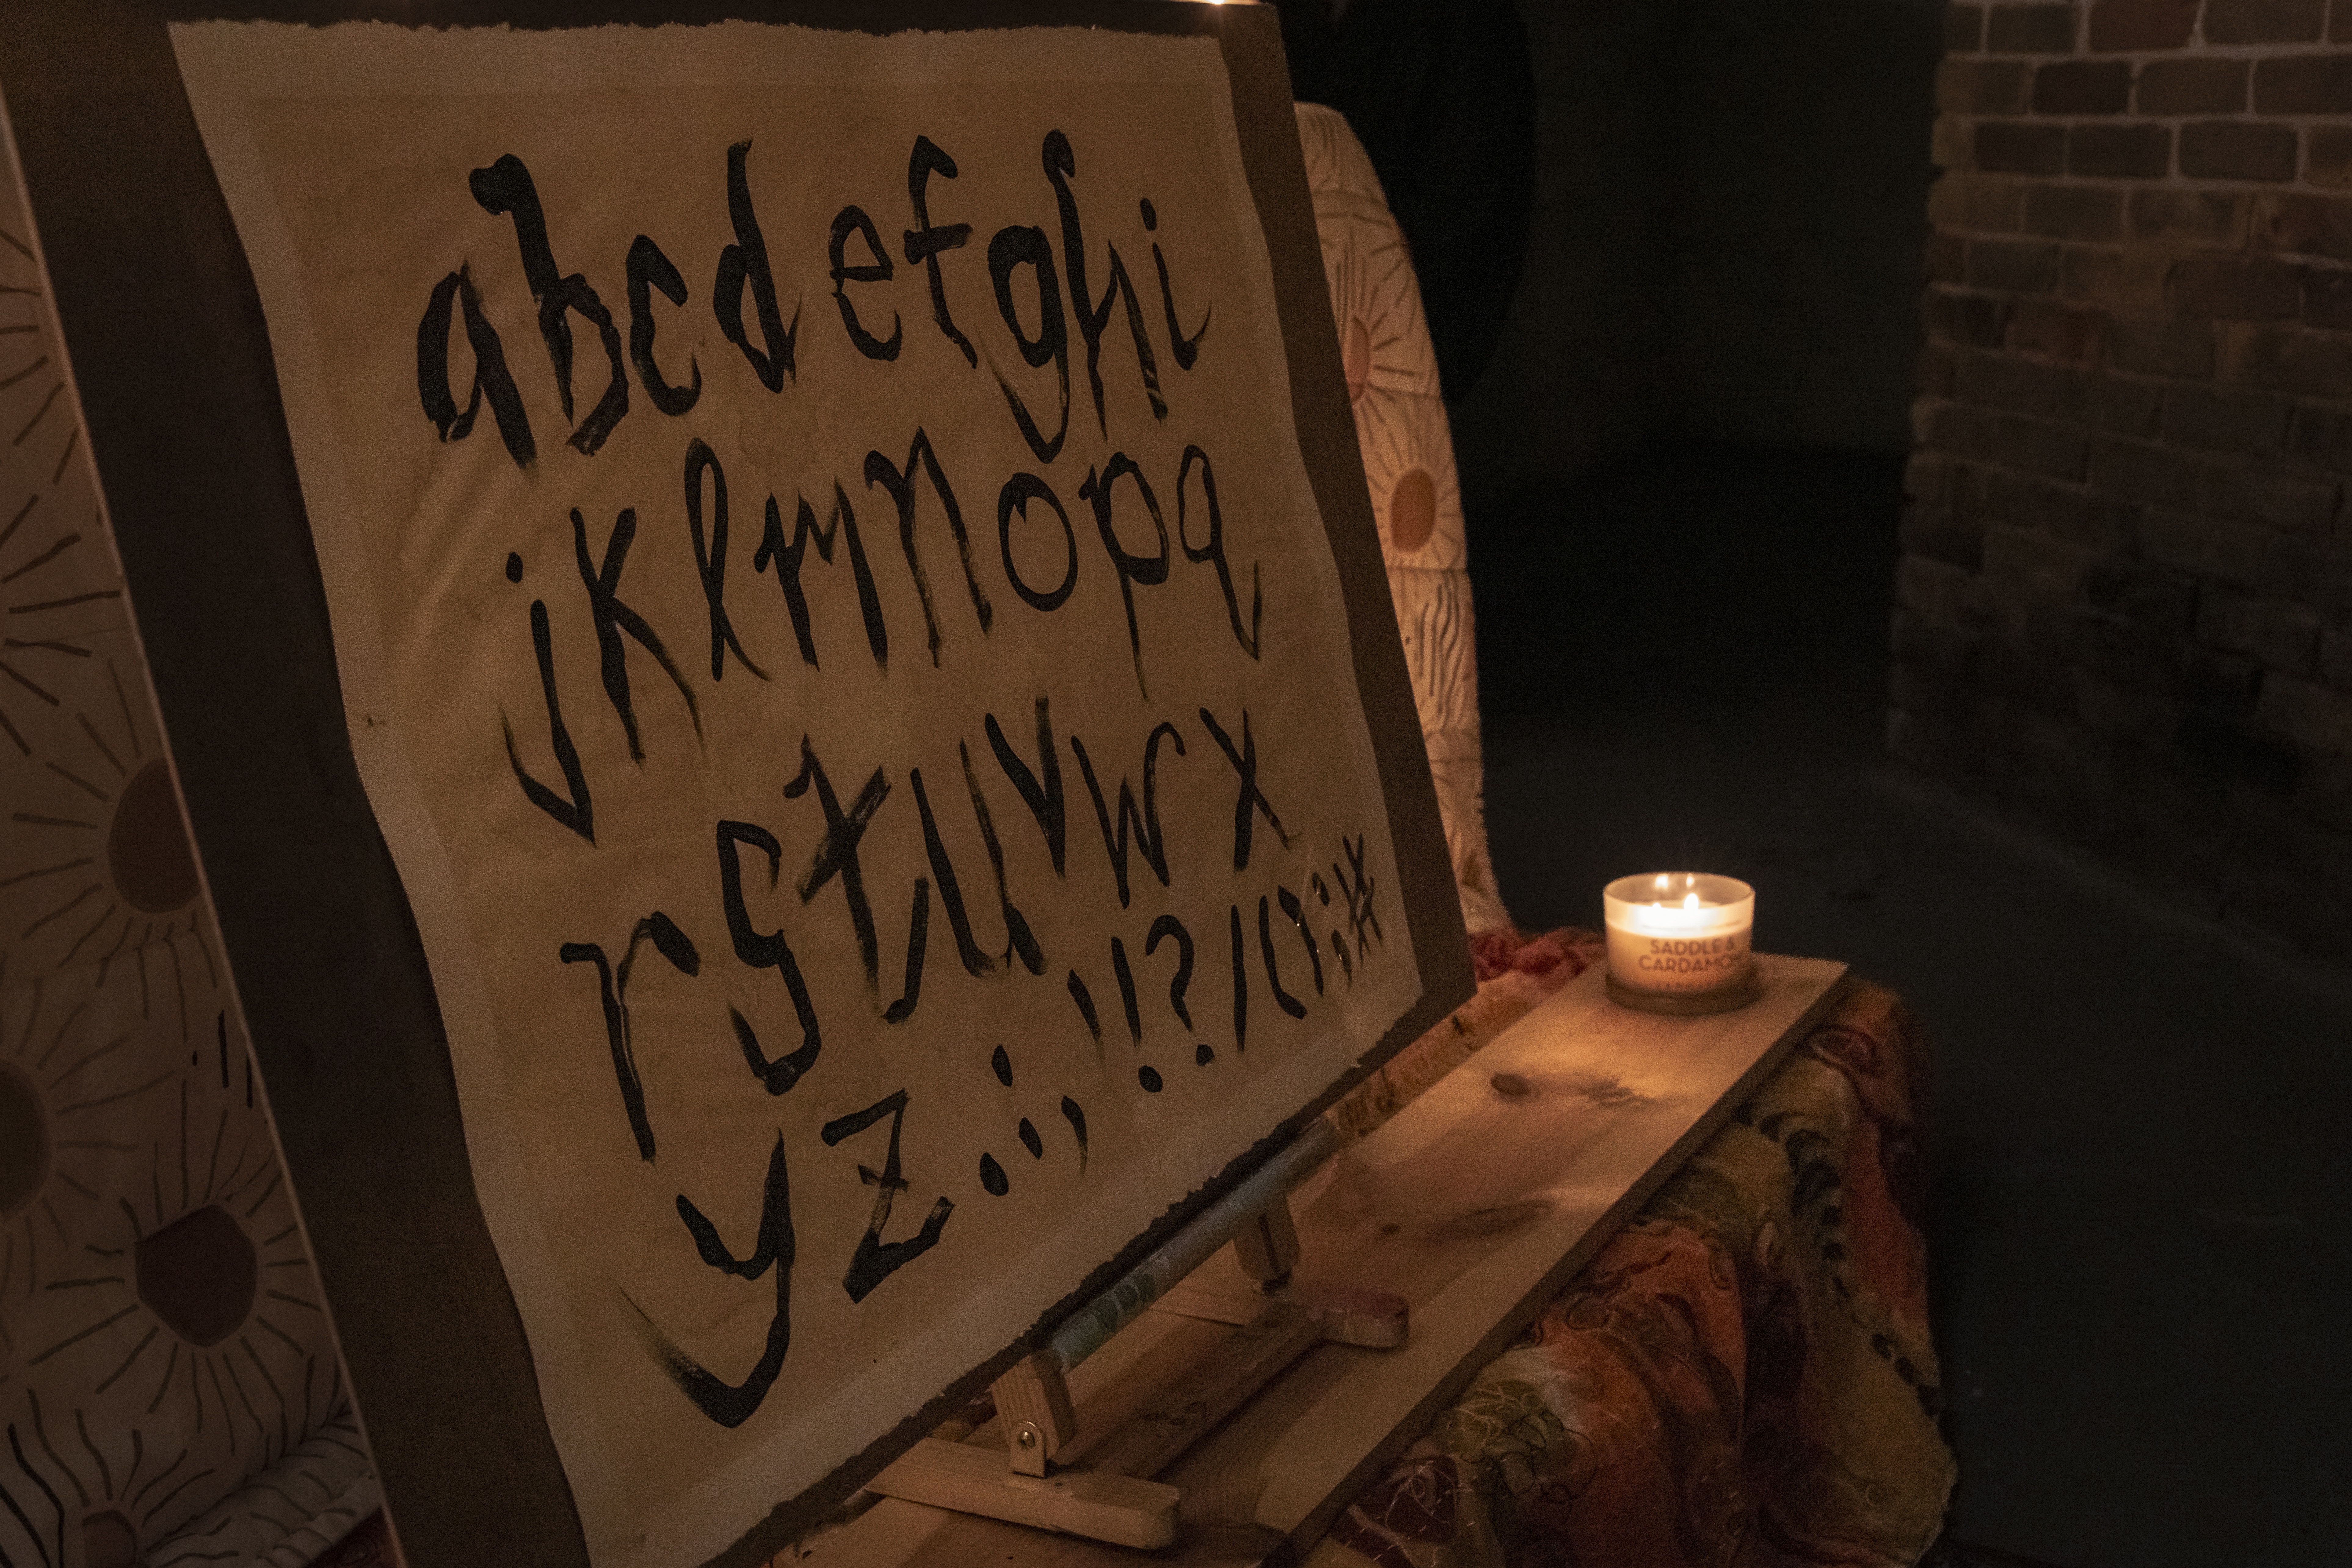 abcdefghi
jklmnopq
rstuvwx
yz.:,'!?/();#
SADDLE &
CARDAMOM